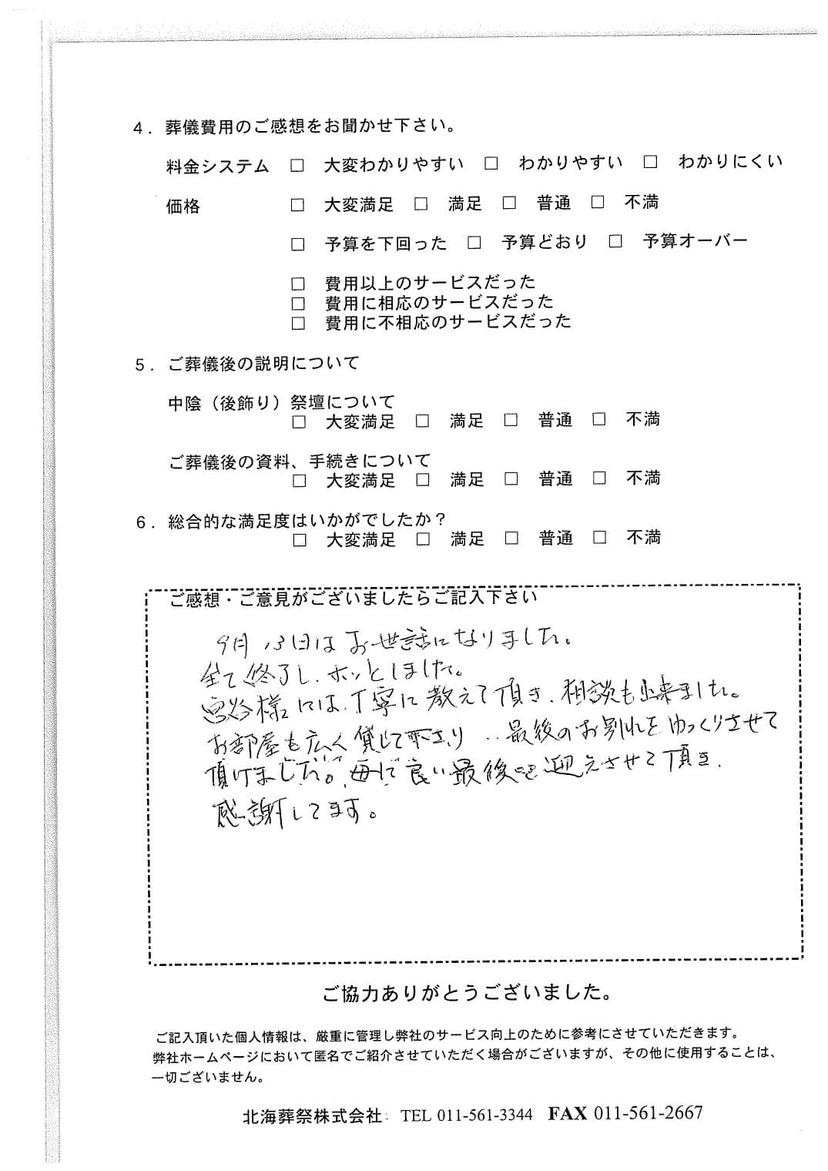 4．葬儀費用のご感想をお聞かせ下さい。
料金システム □ 大変わかりやすい □ わかりやすい □ わかりにくい
価格 □ 大変満足 □ 満足 □ 普通 □ 不満
□ 予算を下回った □ 予算どおり □ 予算オーバー
□ 費用以上のサービスだった
□ 費用に相応のサービスだった
□ 費用に不相応のサービスだった
5．ご葬儀後の説明について
中陰（後飾り）祭壇について
□ 大変満足 □ 満足 □ 普通 □ 不満
ご葬儀後の資料、手続きについて
□ 大変満足 □ 満足 □ 普通 □ 不満
6．総合的な満足度はいかがでしたか？
□ 大変満足 □ 満足 □ 普通 □ 不満
ご感想・ご意見がございましたらご記入下さい
9月13日はお世話になりました。
全て終了し、ホッとしました。
様には、丁寧に教えて頂き、相談も出来ました。
お部屋も広く貸して下さり、最後のお別れをゆっくりさせて
頂けました。母も良い最後を迎えさせて頂き、
感謝してます。
ご協力ありがとうございました。
ご記入頂いた個人情報は、厳重に管理し弊社のサービス向上のために参考にさせていただきます。
弊社ホームページにおいて匿名でご紹介させていただく場合がございますが、その他に使用することは、
一切ございません。
北海葬祭株式会社 TEL 011-561-3344 FAX 011-561-2667